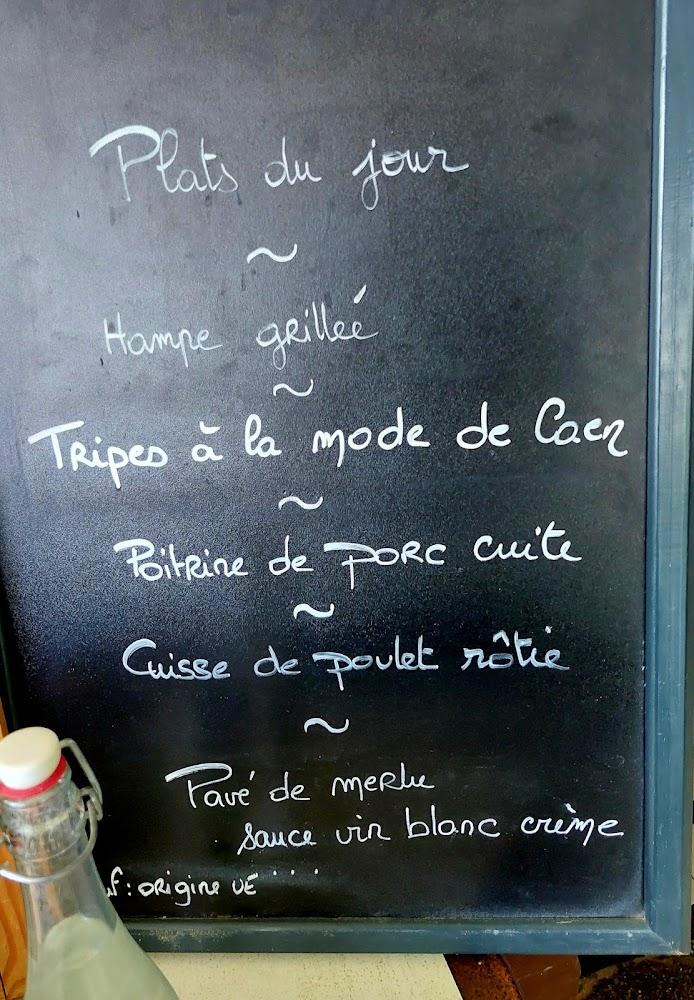 Plats du jour
~
Hampe grillée
~
Tripes à la mode de Caen
~
Poitrine de porc cuite
~
Cuisse de poulet rôtie
~
Pavé de merlu
sauce vin blanc crème
f : origine UE